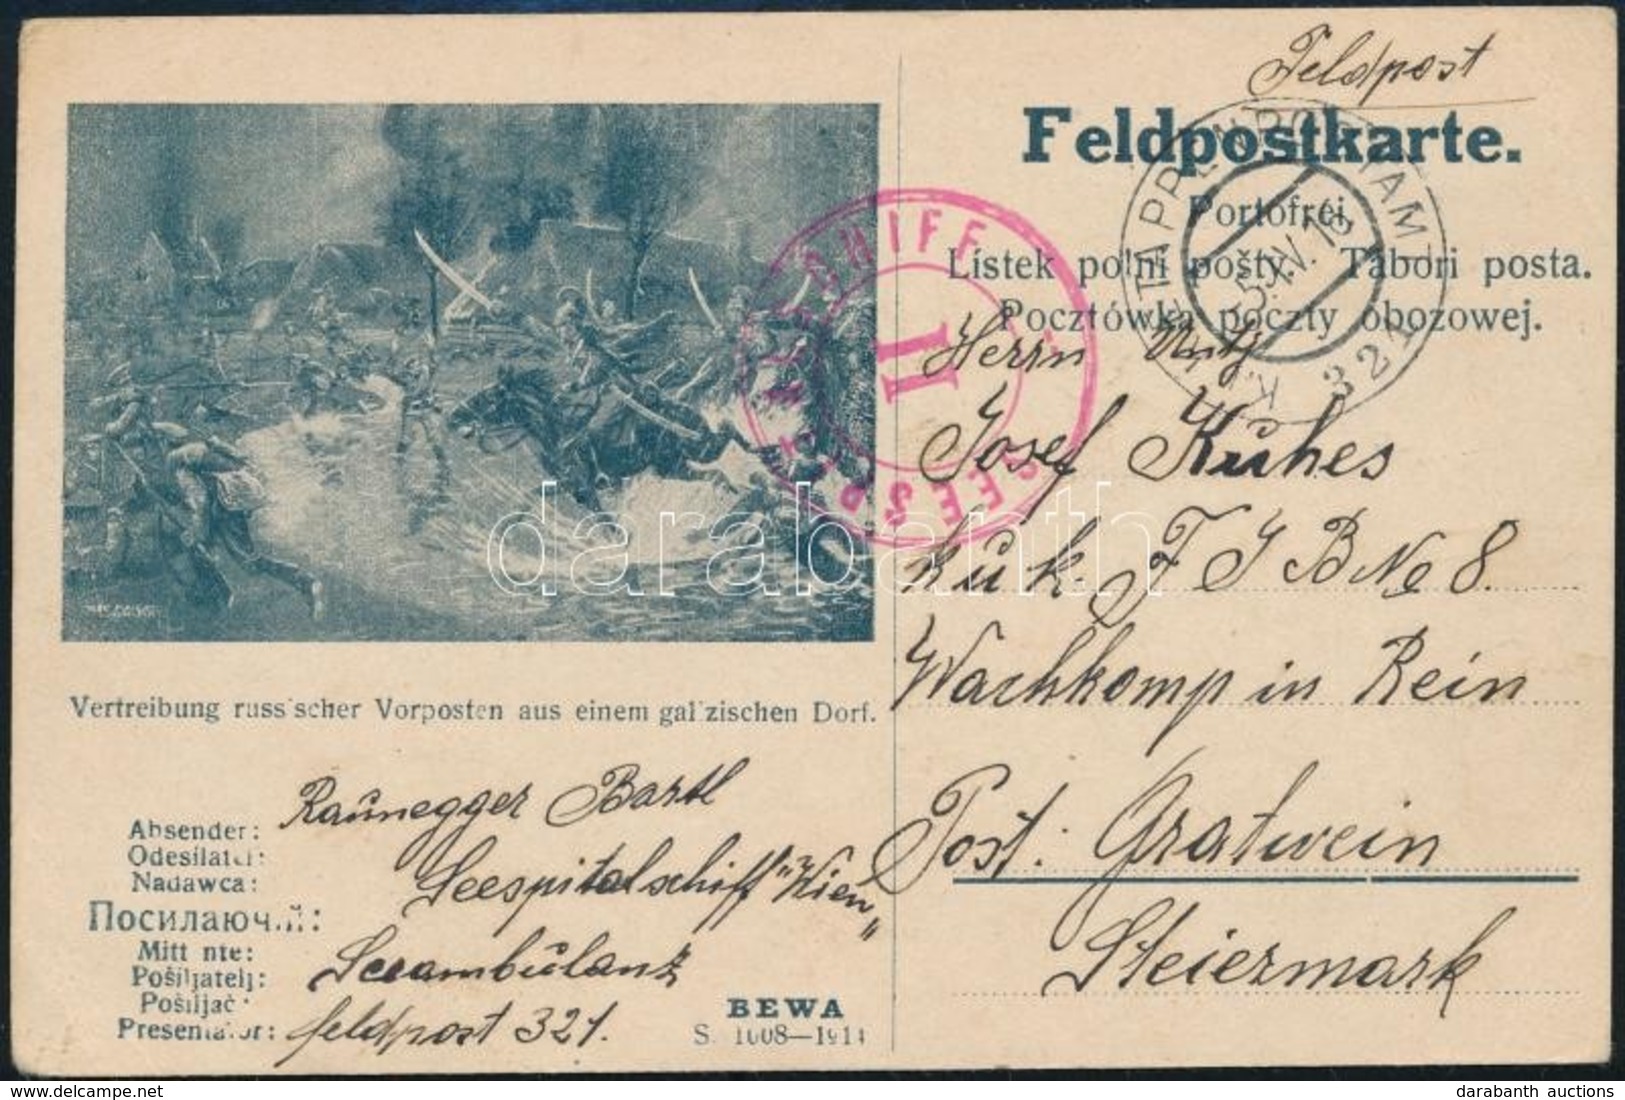 Feldpost
Feldpostkarte.
Portofrei.
Listek polni pošty. Tábori posta.
Pocztówka poczty obozowej.
ETAPPENPOSTAMT
321
SEESPITALSCHIFF
II
Herrn
Josef Kuhes
k u k. F J B No 8.
Wachkomp in Rein
Post: Gratwein
Steiermark
Vertreibung russischer Vorposten aus einem galizischen Dorf.
Absender: Raunegger Bartl
Odesílatel:
Nadawca: Seespitalschiff „Wien"
Посилаючий:
Mittente: Seeambulanz
Pošiljatelj:
Pošiljač:
Presentator: feldpost 321.
BEWA
S. 1608—1914
darabanth
darabanth auctions